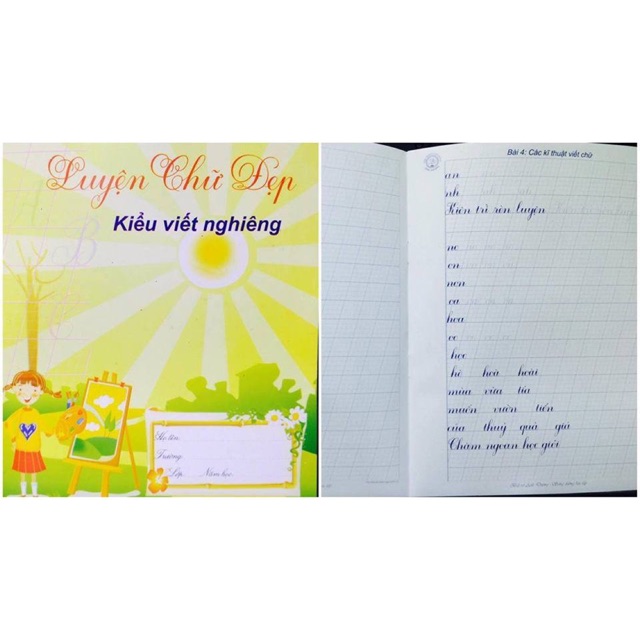 Luyện Chữ Đẹp
Kiểu viết nghiêng
Họ tên:
Trường:
Lớp: Năm học:
Bài 4: Các kĩ thuật viết chữ
nh
Kiên trì rèn luyện
no
on
non
oa
hoa
oc
học
hè hoà hoài
mùa vừa tía
muôn vườn tiến
của thuỷ quà giá
Chăm ngoan học giỏi